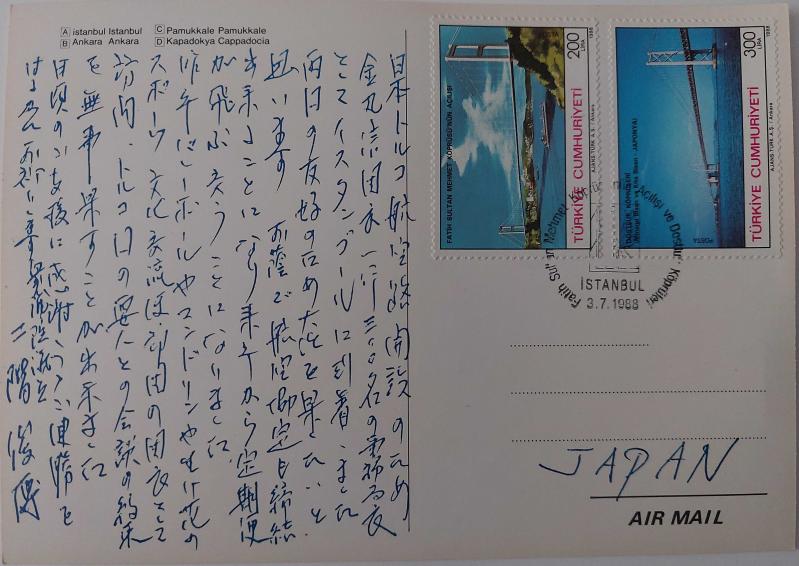 A İstanbul Istanbul
B Ankara Ankara
C Pamukkale Pamukkale
D Kapadokya Cappadocia
日本トルコ航空路開設のため
金丸法国を一行三〇〇名の
としてイスタンブールに到着しました
両日の友好のため大役を果したいと
思います お蔭で航空協定も締結
出来ることになり来年から定期便
が飛ぶ ようことになりました
昨年バレーボールやマンドリンや生け花の
スポーツ 文化交流使節団の団長として
訪問、トルコ日の要人との会談の約束
を無事果すことが出来ました
日頃のご支援に感謝しつつご健勝を
お祈り
二階俊博
200 LİRA
1988
POSTA
FATİH SULTAN MEHMET KÖPRÜSÜ'NÜN AÇILIŞI
AJANS-TÜRK A.Ş. / Ankara
TÜRKİYE CUMHURİYETİ
300 LİRA
1988
POSTA
DOSTLUK KÖPRÜLERİ
JAPONYA)
AJANS-TÜRK A.Ş. / Ankara
TÜRKİYE CUMHURİYETİ
Fatih Sultan Mehmet Köprüsü Açılışı ve Dostluk Köprüleri
İSTANBUL
3.7.1988
JAPAN
AIR MAIL